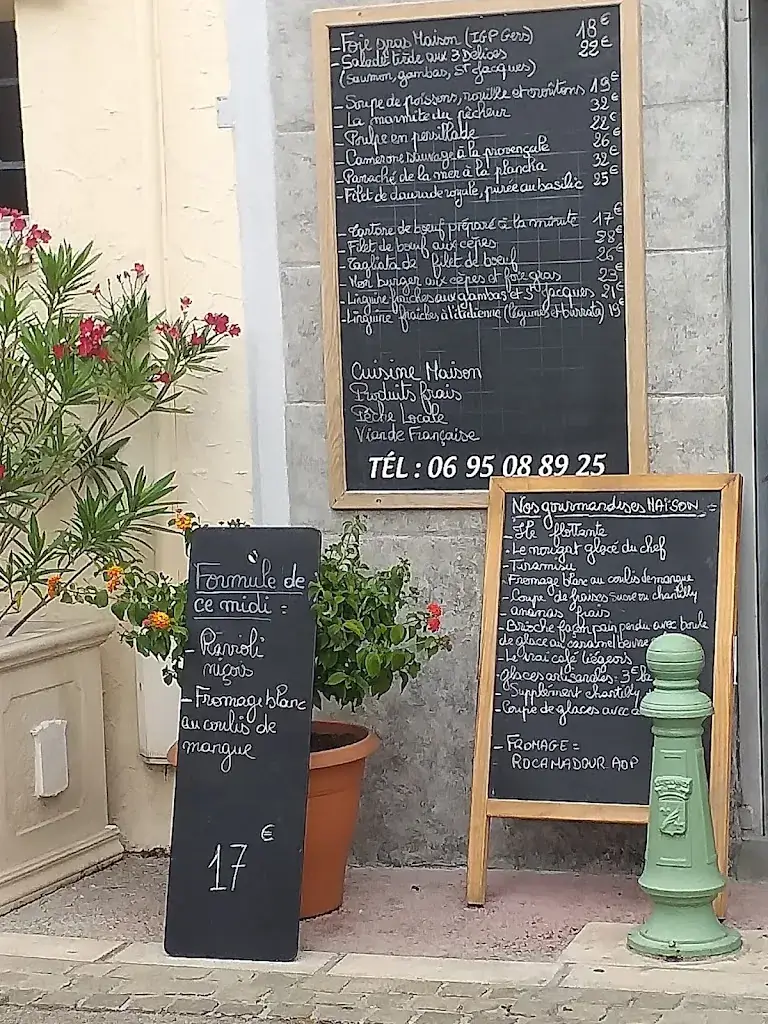 - Foie gras Maison (IGP Gers) 18€
- Salade tiède aux 3 Délices 22€
(saumon, gambas, St Jacques)
- Soupe de poissons, rouille et croûtons 19€
- La marmite du pêcheur 32€
- Poulpe en persillade 22€
- Camerone sauvage à la provençale 26€
- Panaché de la mer à la plancha 32€
- Filet de daurade royale, purée au basilic 25€
- Tartare de bœuf préparé à la minute 17€
- Filet de bœuf aux cèpes 28€
- Tagliata de filet de bœuf 26€
- Nor burger aux cèpes et foie gras 23€
- Linguine fraîches aux gambas et St Jacques 21€
- Linguine fraîches à l'italienne (légumes et burrata) 19€
Cuisine Maison
Produits frais
Pêche Locale
Viande Française
TÉL : 06 95 08 89 25
Nos gourmandises MAISON =
- Île flottante
- Le nougat glacé du chef
- Tiramisu
- Fromage blanc au coulis de mangue
- Coupe de fraises sucre ou chantilly
- ananas frais
- Brioche façon pain perdu avec boule
de glace au caramel beurre
- Le vrai café liégeois
Glaces artisanales : 3€ la
- Supplément chantilly
- Coupe de glaces avec
- FROMAGE =
ROCAMADOUR AOP
Formule de
ce midi =
- Ravioli
niçois
- Fromage blanc
au coulis de
mangue
17€